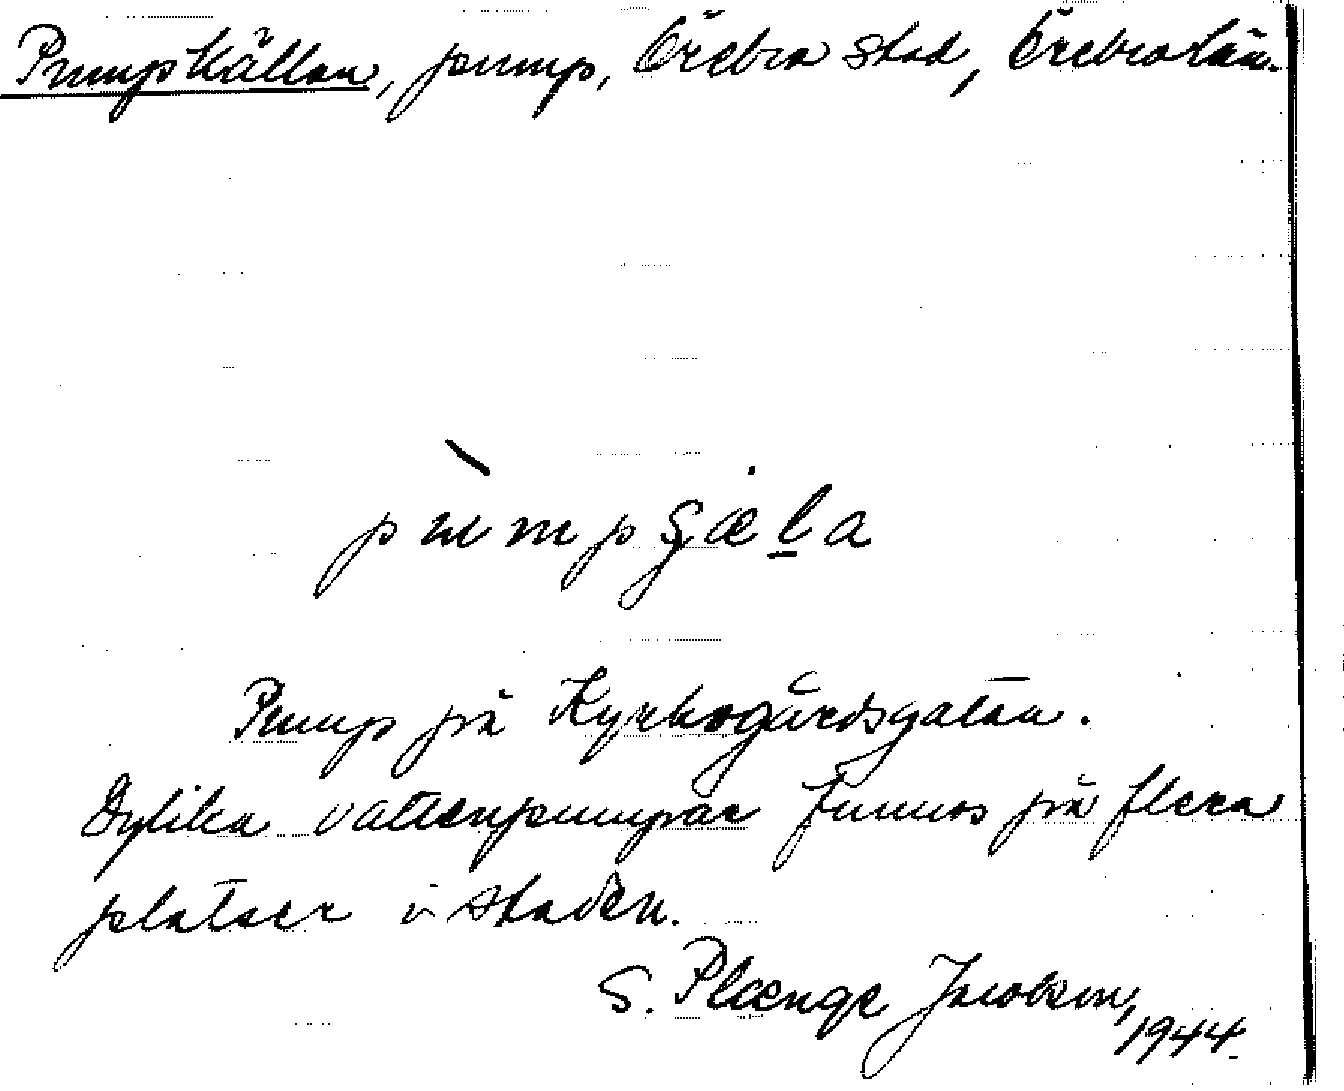 Pumpkällan, pump, Örebro stad, Örebro län.
pùmpɕæla
Pump på Kyrkogårdsgatan.
Dylika vattenpumpar funnos på flera
platser i staden.
S. Plænge Jacobson,
1944.